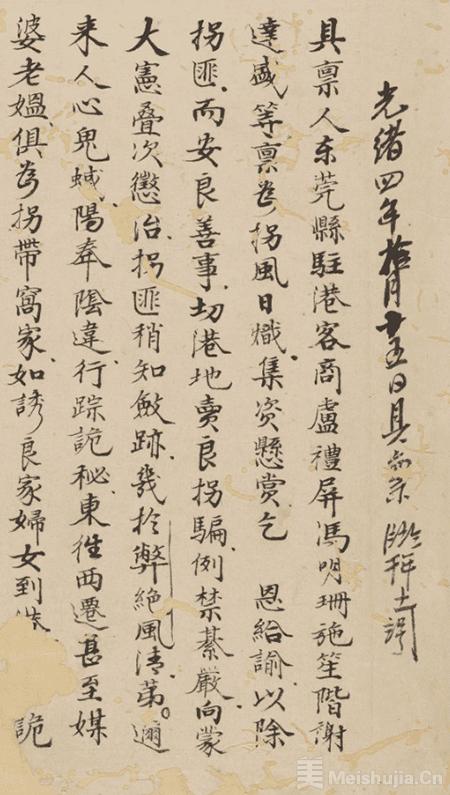 光緒四年拾月十五日具稟
具稟人东莞縣駐港客商盧禮屏馮明珊施笙階謝
達盛等稟為拐風日熾集資懸賞乞 恩給諭以除
拐匪而安良善事切港地賣良拐騙例禁綦嚴向蒙
大憲叠次懲治拐匪稍知斂跡幾於弊絕風清苐邇
来人心鬼蜮陽奉陰違行踪詭秘東徃西遷甚至媒
婆老媼俱為拐帶窩家如誘良家婦女到港 詭
美 Meishujia.Cn